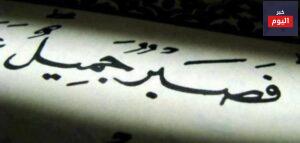 خبر
اليوم
فَصَبْرٌ جَمِيلٌ